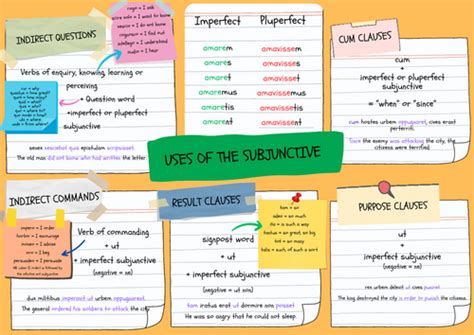 INDIRECT QUESTIONS
rogo = I ask
scire volo = I want to know
nescio = I do not know
cognosco = I find out
intellego = I understand
audio = I hear
Verbs of enquiry, knowing, learning or
perceiving
+ Question word
+imperfect or pluperfect
subjunctive
cur = why
quando = when?
quis = who?
quid = what?
unde = from where?
senex nesciebat quis epistulam scripsisset.
The old man did not know who had written the letter.
Imperfect Pluperfect
amarem amavissem
amares amavisses
amaret amavisset
amaremus amavissemus
amaretis amavissetis
amarent amavissent
CUM CLAUSES
cum
+
imperfect or pluperfect
subjunctive
= "when" or "since"
cum hostes urbem oppugnarent, cives erant
perterriti.
the enemy was attacking the city, the
citizens were terrified.
USES OF THE SUBJUNCTIVE
INDIRECT COMMANDS
impero = I order
hortor = I encourage
moneo = I advise
oro = I beg
persuadeo = I persuade
Verb of commanding
+ ut
+ imperfect subjunctive
(negative = ne)
dux militibus imperavit ut urbem oppugnarent.
The general ordered his soldiers to attack the city.
RESULT CLAUSES
signpost word
+ ut
+ imperfect subjunctive
(negative = ut non)
tam = so
adeo = so much
ita = in such a way
tantus = so great, so big
tot = so many
talis = such, of such a sort
tam iratus erat ut dormire non posset.
He was so angry that he could not sleep.
PURPOSE CLAUSES
ut
+
imperfect subjunctive
(negative = ne)
rex urbem delevit ut cives puniret.
The king destroyed the city in order to punish the citizens.